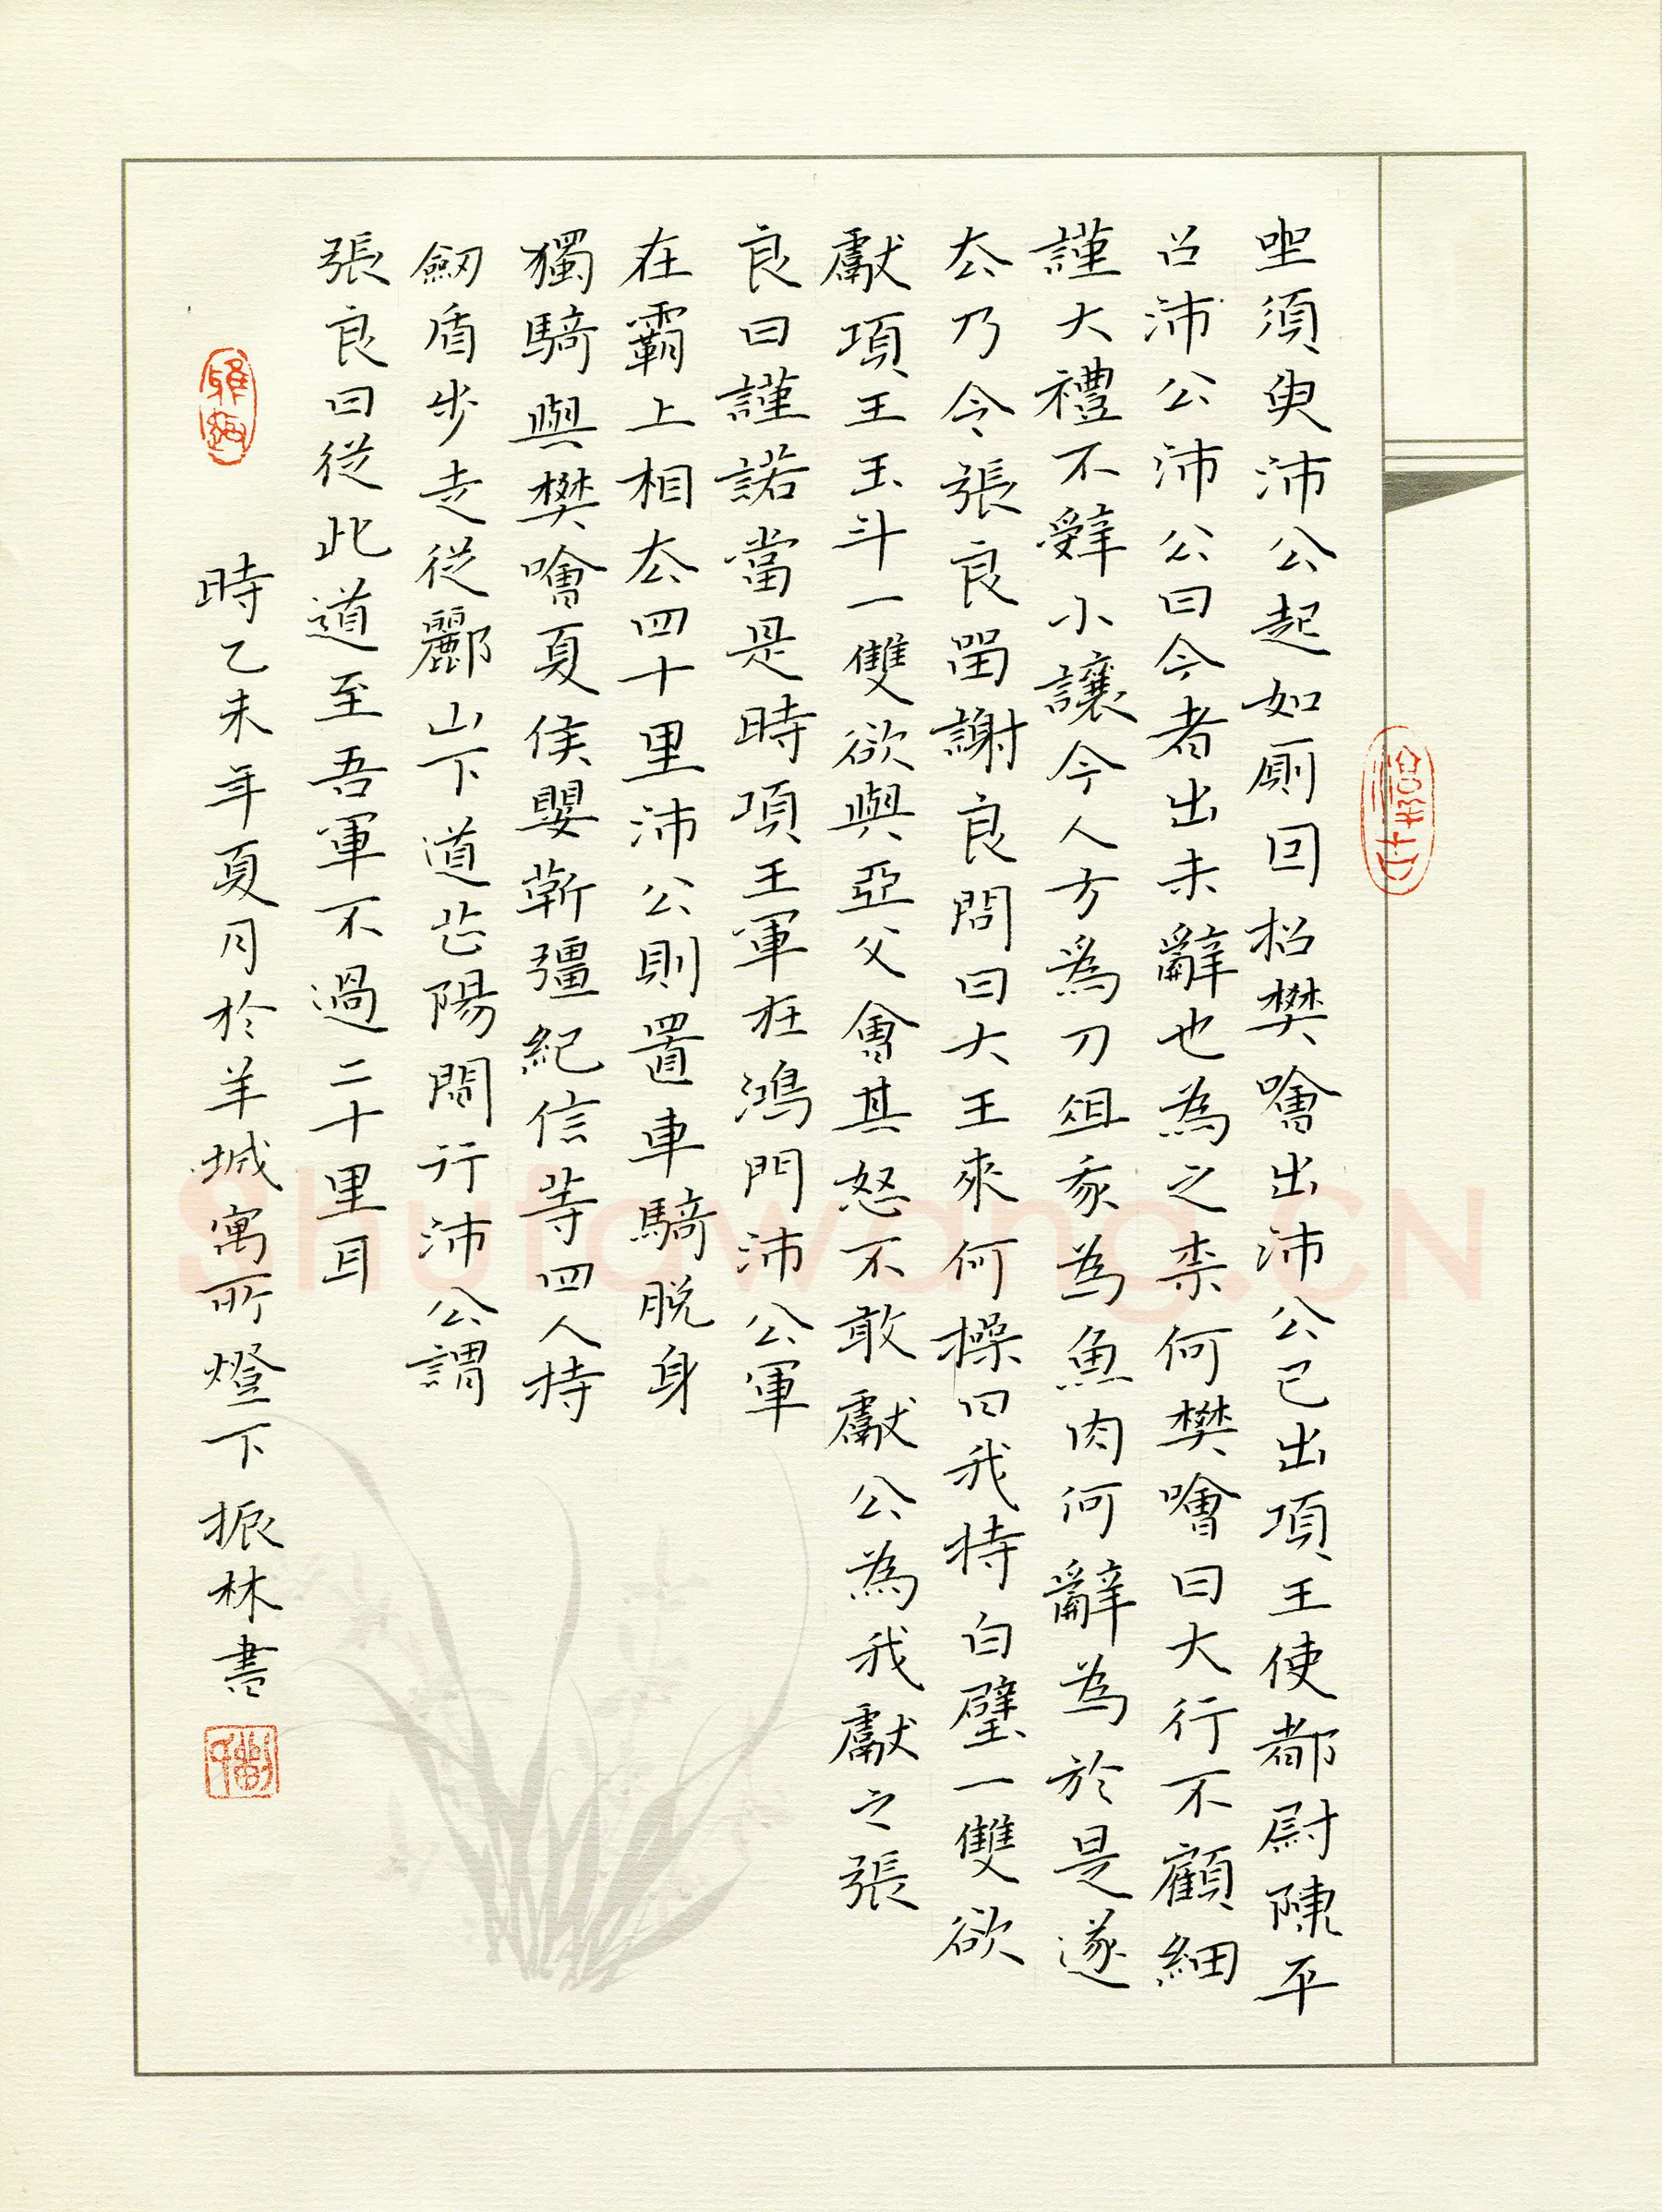 坐須臾沛公起如厠因招樊噲出沛公已出項王使都尉陳平
召沛公沛公曰今者出未辭也為之柰何樊噲曰大行不顧細
謹大禮不辭小讓今人方爲刀俎我為魚肉何辭為於是遂
去乃令張良留謝良問曰大王來何操曰我持白璧一雙欲
獻項王玉斗一雙欲與亞父會其怒不敢獻公為我獻之張
良曰謹諾當是時項王軍在鴻門沛公軍
在霸上相去四十里沛公則置車騎脫身
獨騎與樊噲夏侯嬰靳彊紀信等四人持
劒盾步走從酈山下道芷陽間行沛公謂
張良曰從此道至吾軍不過二十里耳
時乙未年夏月於羊城寓所燈下振林書
Shufawang.CN